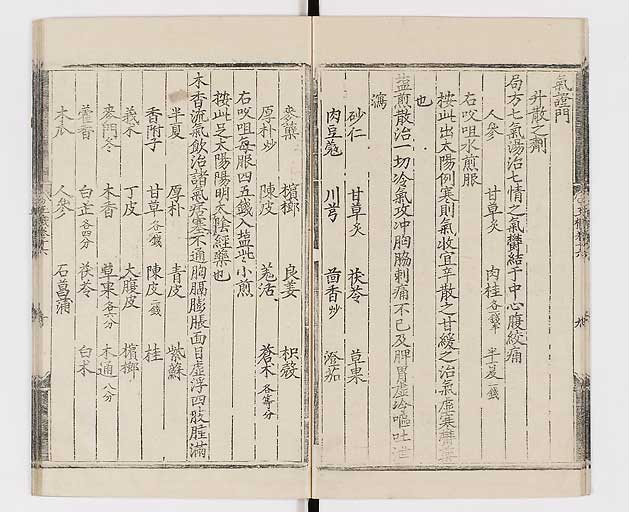 氣證門
升散之劑
局方七氣湯治七情之氣鬱結于中心腹絞痛
人參 甘草炙 肉桂各一錢 半夏一錢
右㕮咀水煎服
按此出太陽例寒則氣收宜辛散之甘緩之治氣虛寒鬱
也
鹽煎散治一切冷氣攻冲胸脇刺痛不已及脾胃虛冷嘔吐泄
瀉
砂仁 甘草炙 茯苓 草果
肉豆蔻 川芎 茴香炒 澄茄
麥蘗 檳榔 良姜 枳殼
厚朴炒 陳皮 羌活 蒼朮各等分
右㕮咀每服四五錢入塩些小煎
按此足太陽陽明太陰經藥也
木香流氣飲治諸氣痞塞不通胸膈膨脹面目虛浮四肢腫滿
半夏 厚朴 青皮 紫蘇
香附子 甘草各錢 陳皮二錢 桂
莪朮 丁皮 大腹皮 檳榔
麥門冬 木香 草果各六分 木通八分
藿香 白芷各四分 茯苓 白朮
木瓜 人參 石菖蒲